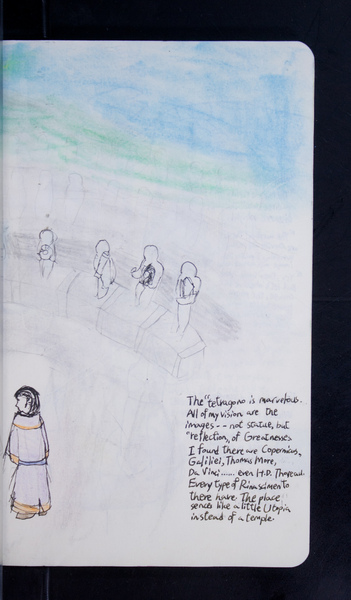 The "tetragono is marvelous.
All of my vision are the
images -- not statue, but
"reflection, of Greatness
I found there are Copernicus,
Galiliei, Thomas More,
Da Vinci ...... even H.D. Thoreau.
Every type of Rinascimento
there have. The place
like a little Utopia
instead of a temple.